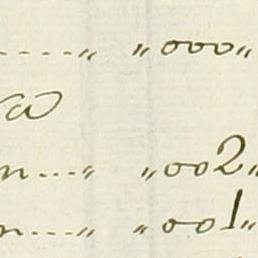 ....." "000"
a
n..." "002"
n...." "001"